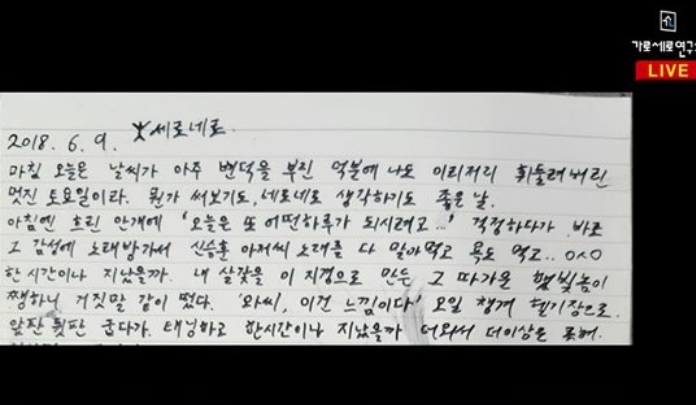 가로세로연구소
LIVE
2018. 6. 9. ★세로네로
마침 오늘은 날씨가 아주 변덕을 부린 덕분에 나도 이리저리 휘둘려버린
멋진 토요일이라. 뭔가 써보기도, 세로네로 생각하기도 좋은 날.
아침엔 흐린 안개에 '오늘은 또 어떤하루가 되시려고...' 걱정하다가 바로
그 감성에 노래방가서 신승훈 아저씨 노래를 다 말아먹고 욕도 먹고.. ㅇㅅㅇ
한시간이나 지났을까. 내 살갗을 이 지경으로 만든 그 따가운 햇빛놈이
쨍하니 거짓말 같이 떴다. '와씨, 이건 느낌이다' 오일 챙겨 헬기장으로.
앞판 뒷판 굽다가. 태닝하고 한시간이나 지났을까 더와서 더이상은 못해.